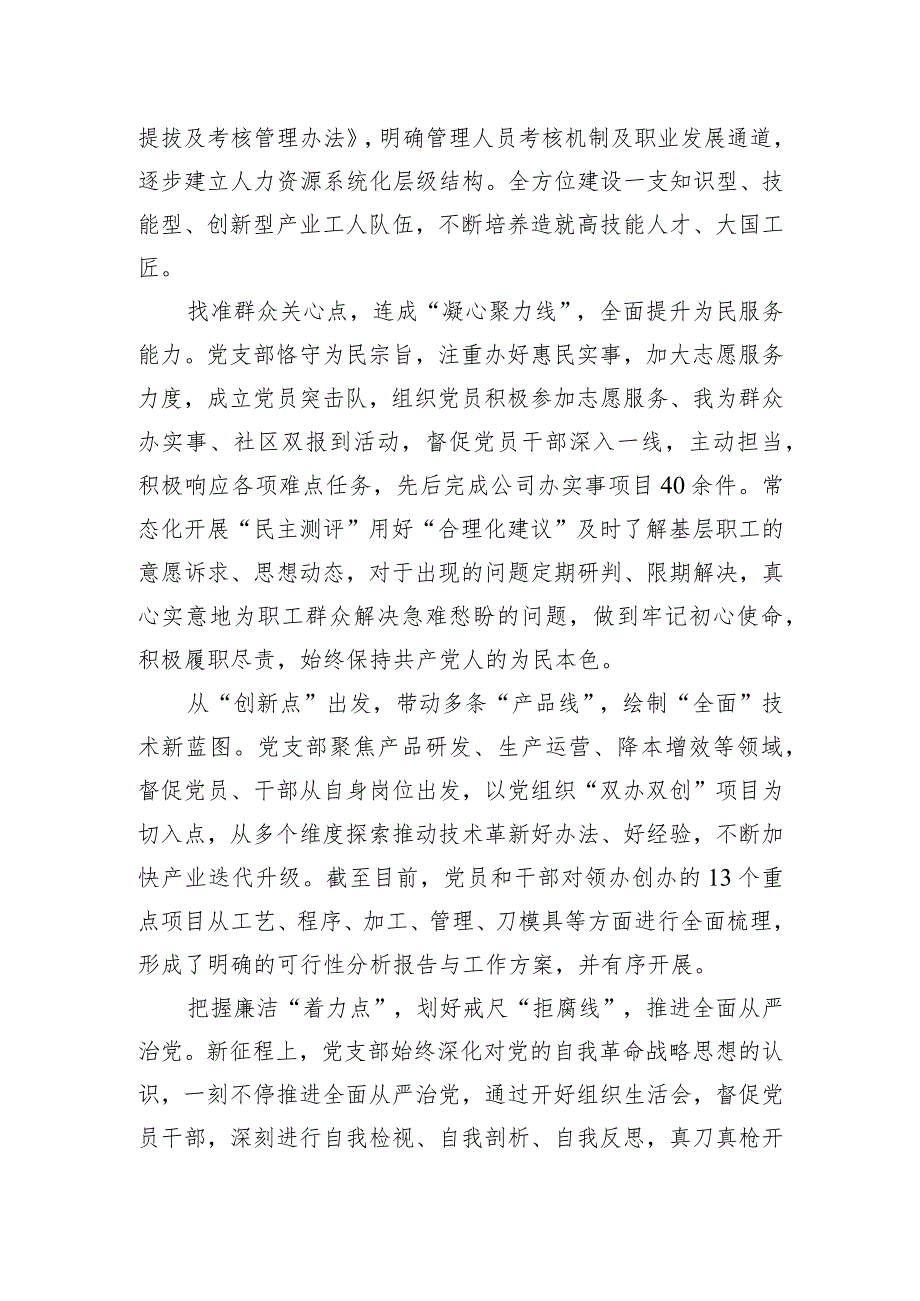 提拔及考核管理办法》，明确管理人员考核机制及职业发展通道，
逐步建立人力资源系统化层级结构。全方位建设一支知识型、技
能型、创新型产业工人队伍，不断培养造就高技能人才、大国工
匠。
找准群众关心点，连成“凝心聚力线”，全面提升为民服务
能力。党支部恪守为民宗旨，注重办好惠民实事，加大志愿服务
力度，成立党员突击队，组织党员积极参加志愿服务、我为群众
办实事、社区双报到活动，督促党员干部深入一线，主动担当，
积极响应各项难点任务，先后完成公司办实事项目 40 余件。常
态化开展“民主测评”用好“合理化建议”及时了解基层职工的
意愿诉求、思想动态，对于出现的问题定期研判、限期解决，真
心实意地为职工群众解决急难愁盼的问题，做到牢记初心使命，
积极履职尽责，始终保持共产党人的为民本色。
从“创新点”出发，带动多条“产品线”，绘制“全面”技
术新蓝图。党支部聚焦产品研发、生产运营、降本增效等领域，
督促党员、干部从自身岗位出发，以党组织“双办双创”项目为
切入点，从多个维度探索推动技术革新好办法、好经验，不断加
快产业迭代升级。截至目前，党员和干部对领办创办的 13 个重
点项目从工艺、程序、加工、管理、刀模具等方面进行全面梳理，
形成了明确的可行性分析报告与工作方案，并有序开展。
把握廉洁“着力点”，划好戒尺“拒腐线”，推进全面从严
治党。新征程上，党支部始终深化对党的自我革命战略思想的认
识，一刻不停推进全面从严治党，通过开好组织生活会，督促党
员干部，深刻进行自我检视、自我剖析、自我反思，真刀真枪开